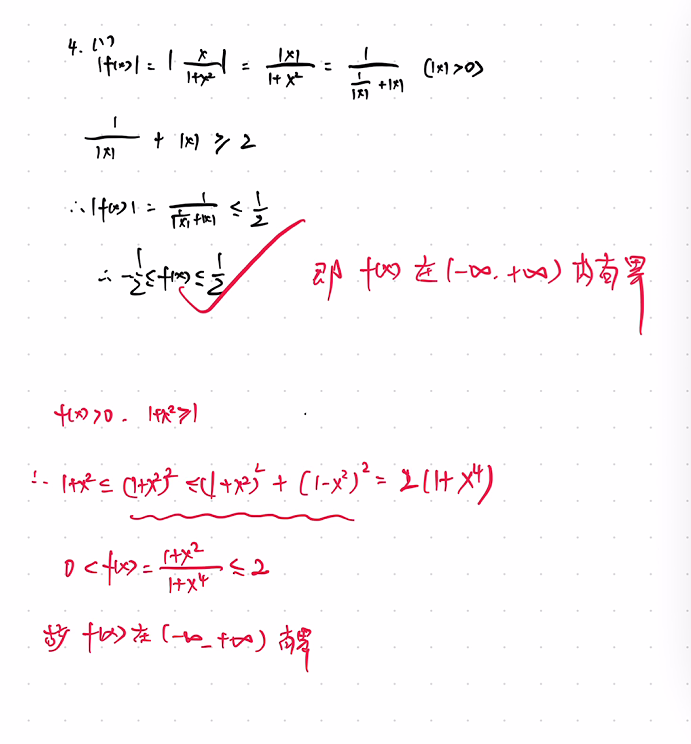 4. (1)
|f(x)| = |x/(1+x²)| = |x|/(1+x²) = 1/(1/|x| + |x|) (|x|>0)
1/|x| + |x| ≥ 2
∴ |f(x)| = 1/(1/|x|+|x|) ≤ 1/2
∴ -1/2 ≤ f(x) ≤ 1/2 即 f(x) 在 (-∞, +∞) 内有界
f(x)>0. 1+x²≥1
∴ 1+x² ≤ (1+x²)² ≤ (1+x²)² + (1-x²)² = 2(1+x⁴)
0 < f(x) = (1+x²)/(1+x⁴) ≤ 2
故 f(x) 在 (-∞, +∞) 有界